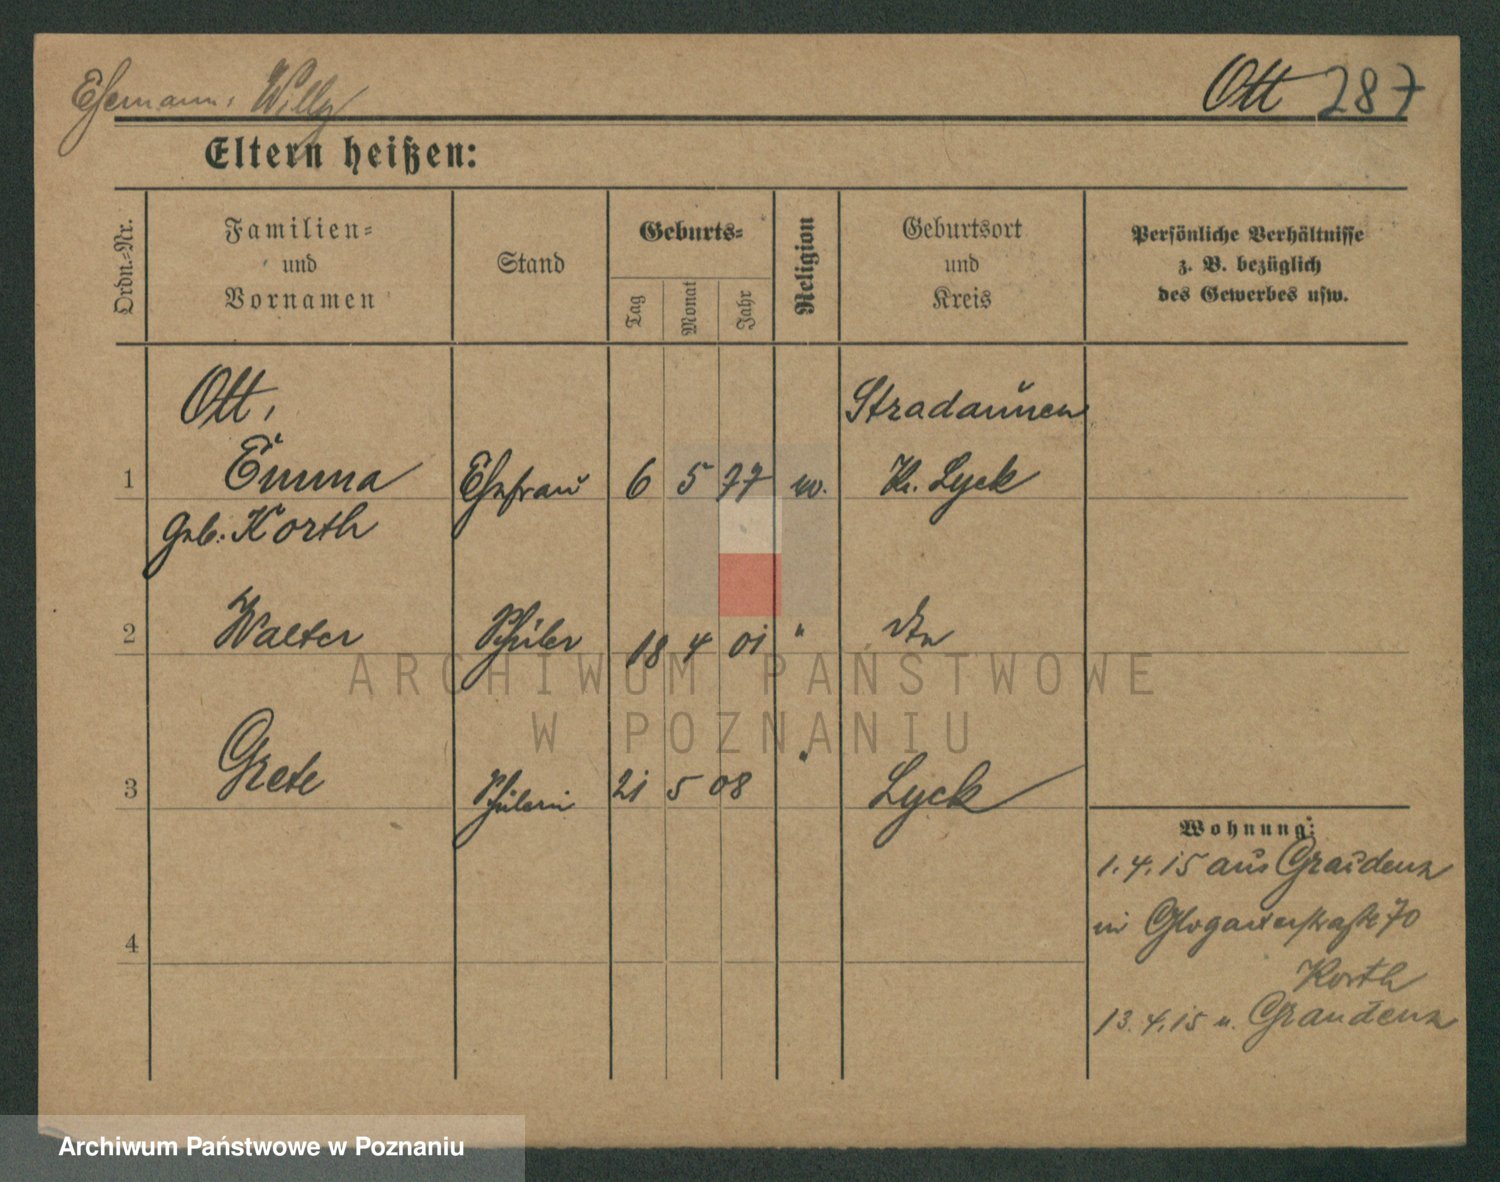 Ehemann: Willy
Ott 287
Eltern heißen:
Ordn.-Nr.
Familien-
und
Vornamen
Stand
Geburts-
Tag
Monat
Jahr
Religion
Geburtsort
und
Kreis
Persönliche Verhältnisse
z. B. bezüglich
des Gewerbes usw.
Ott,
Stradaunen
1 Emma Ehefrau 6 5 77 Kr. Lyck
geb. Korth
2 Walter Schüler 18 4 01 "
3 Grete Schülerin 21 5 08 " Lyck
Wohnung:
1.4.15 aus Graudenz
in Glogauerstraße 70
4
Korth
13.4.15 n. Graudenz
ARCHIWUM PAŃSTWOWE
W POZNANIU
Archiwum Państwowe w Poznaniu